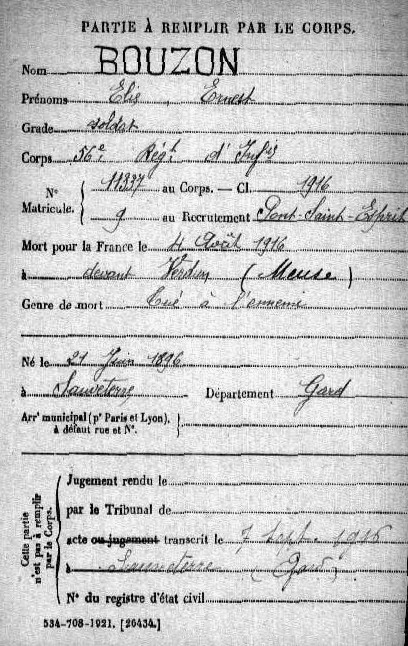 PARTIE À REMPLIR PAR LE CORPS.
Nom BOUZON
Prénoms Elie, Ernest
Grade soldat
Corps 56e Régt d'Infie
N° Matricule. 11337 au Corps. — Cl. 1916
9 au Recrutement Pont-Saint-Esprit
Mort pour la France le 4 Août 1916
à devant Verdun (Meuse)
Genre de mort Tué à l'ennemi
Né le 21 Juin 1896
à Sauveterre Département Gard
Arrt municipal (pr Paris et Lyon), à défaut rue et N°.
Cette partie n'est pas à remplir par le Corps.
Jugement rendu le
par le Tribunal de
acte ou jugement transcrit le 7 Sept. 1916
à Sauveterre (Gard)
N° du registre d'état civil
534-708-1921. [26434.]